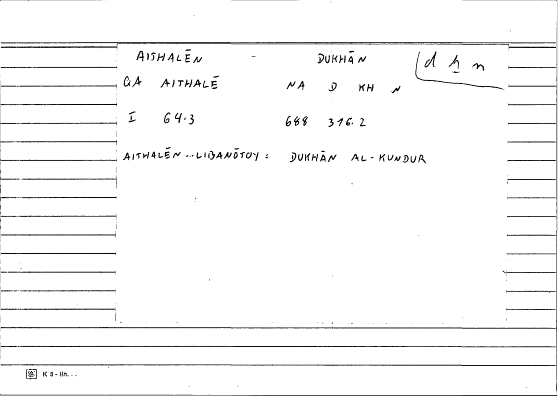 AITHALĒN - DUKHĀN
d ḫ n
GA AITHALĒ NA D KH N
I 64.3 688 316.2
AITHALĒN..LIBANŌTOY: DUKHĀN AL-KUNDUR
K 3 - lin...